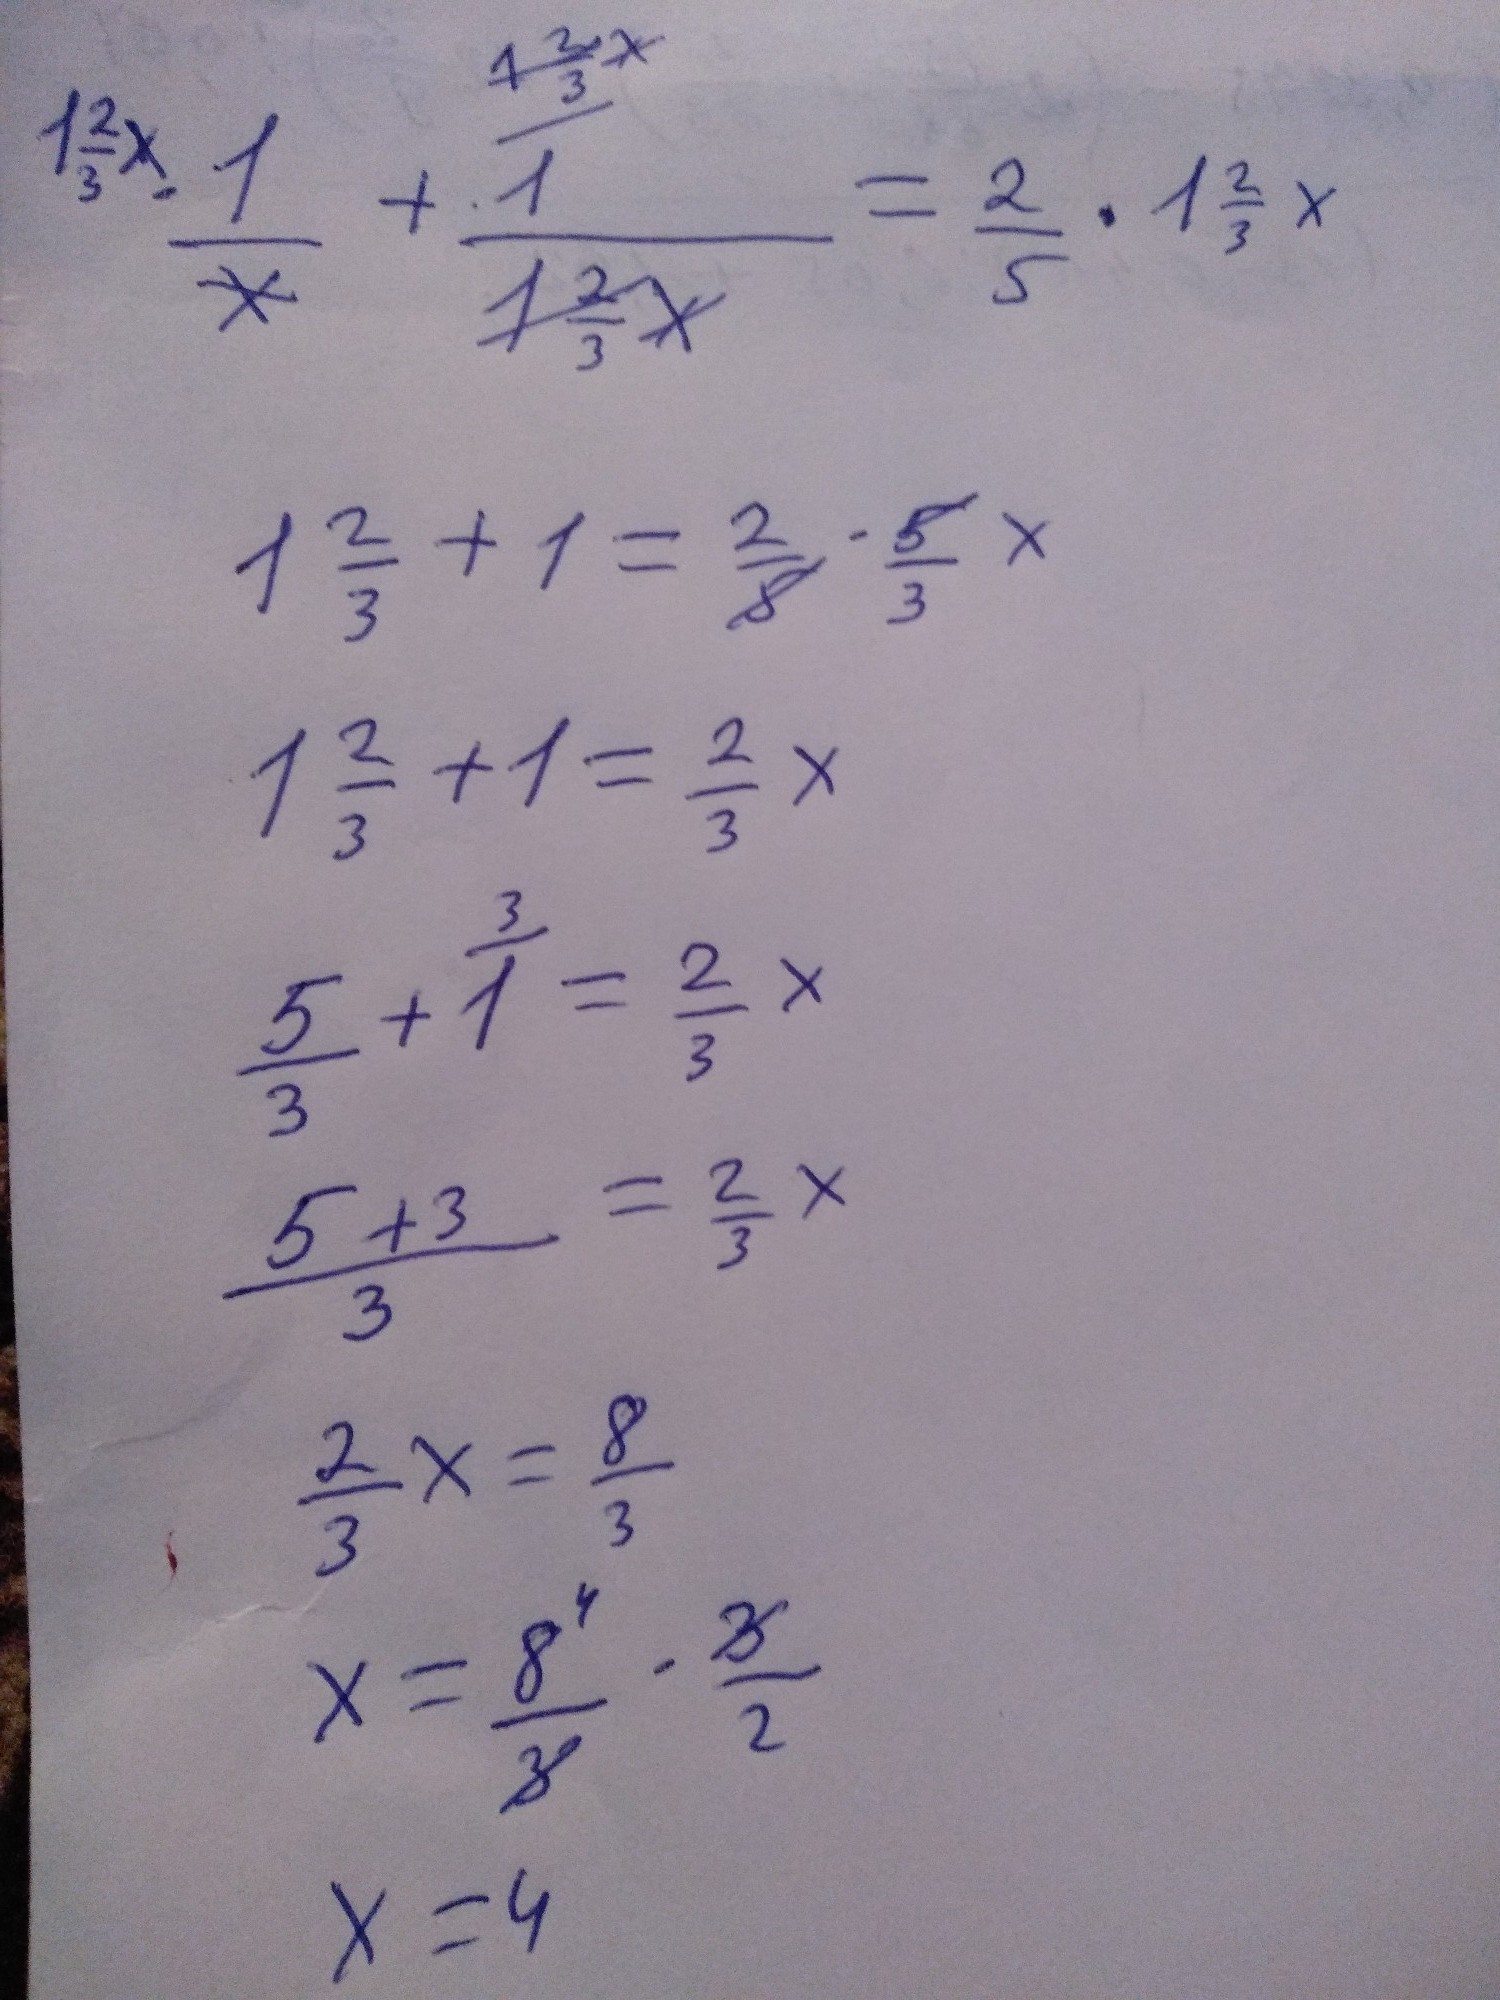 1 2/3 x · 1/x + 1 2/3 x / 1 / 1 2/3 x = 2/5 · 1 2/3 x
1 2/3 + 1 = 2/5 · 5/3 x
1 2/3 + 1 = 2/3 x
5/3 + 3/1 = 2/3 x
5+3/3 = 2/3 x
2/3 x = 8/3
x = 8 4/3 · 3/2
x = 4